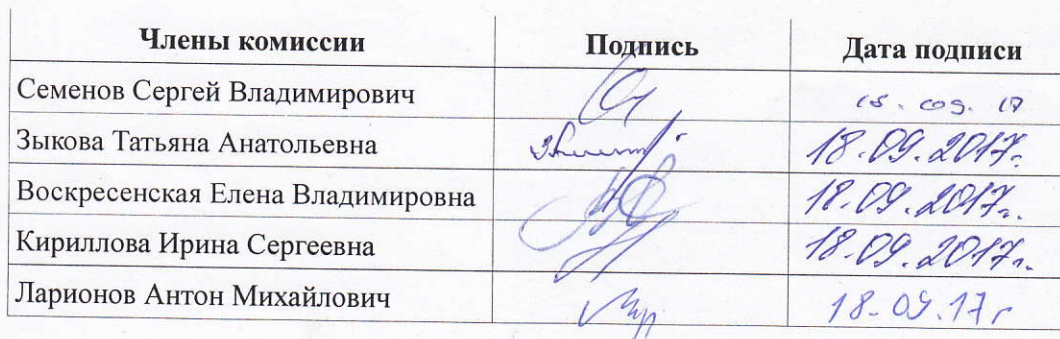 Члены комиссии Подпись Дата подписи
Семенов Сергей Владимирович
Зыкова Татьяна Анатольевна 18.09.2017г.
Воскресенская Елена Владимировна 18.09.2017г.
Кириллова Ирина Сергеевна 18.09.2017г.
Ларионов Антон Михайлович 18.09.17г